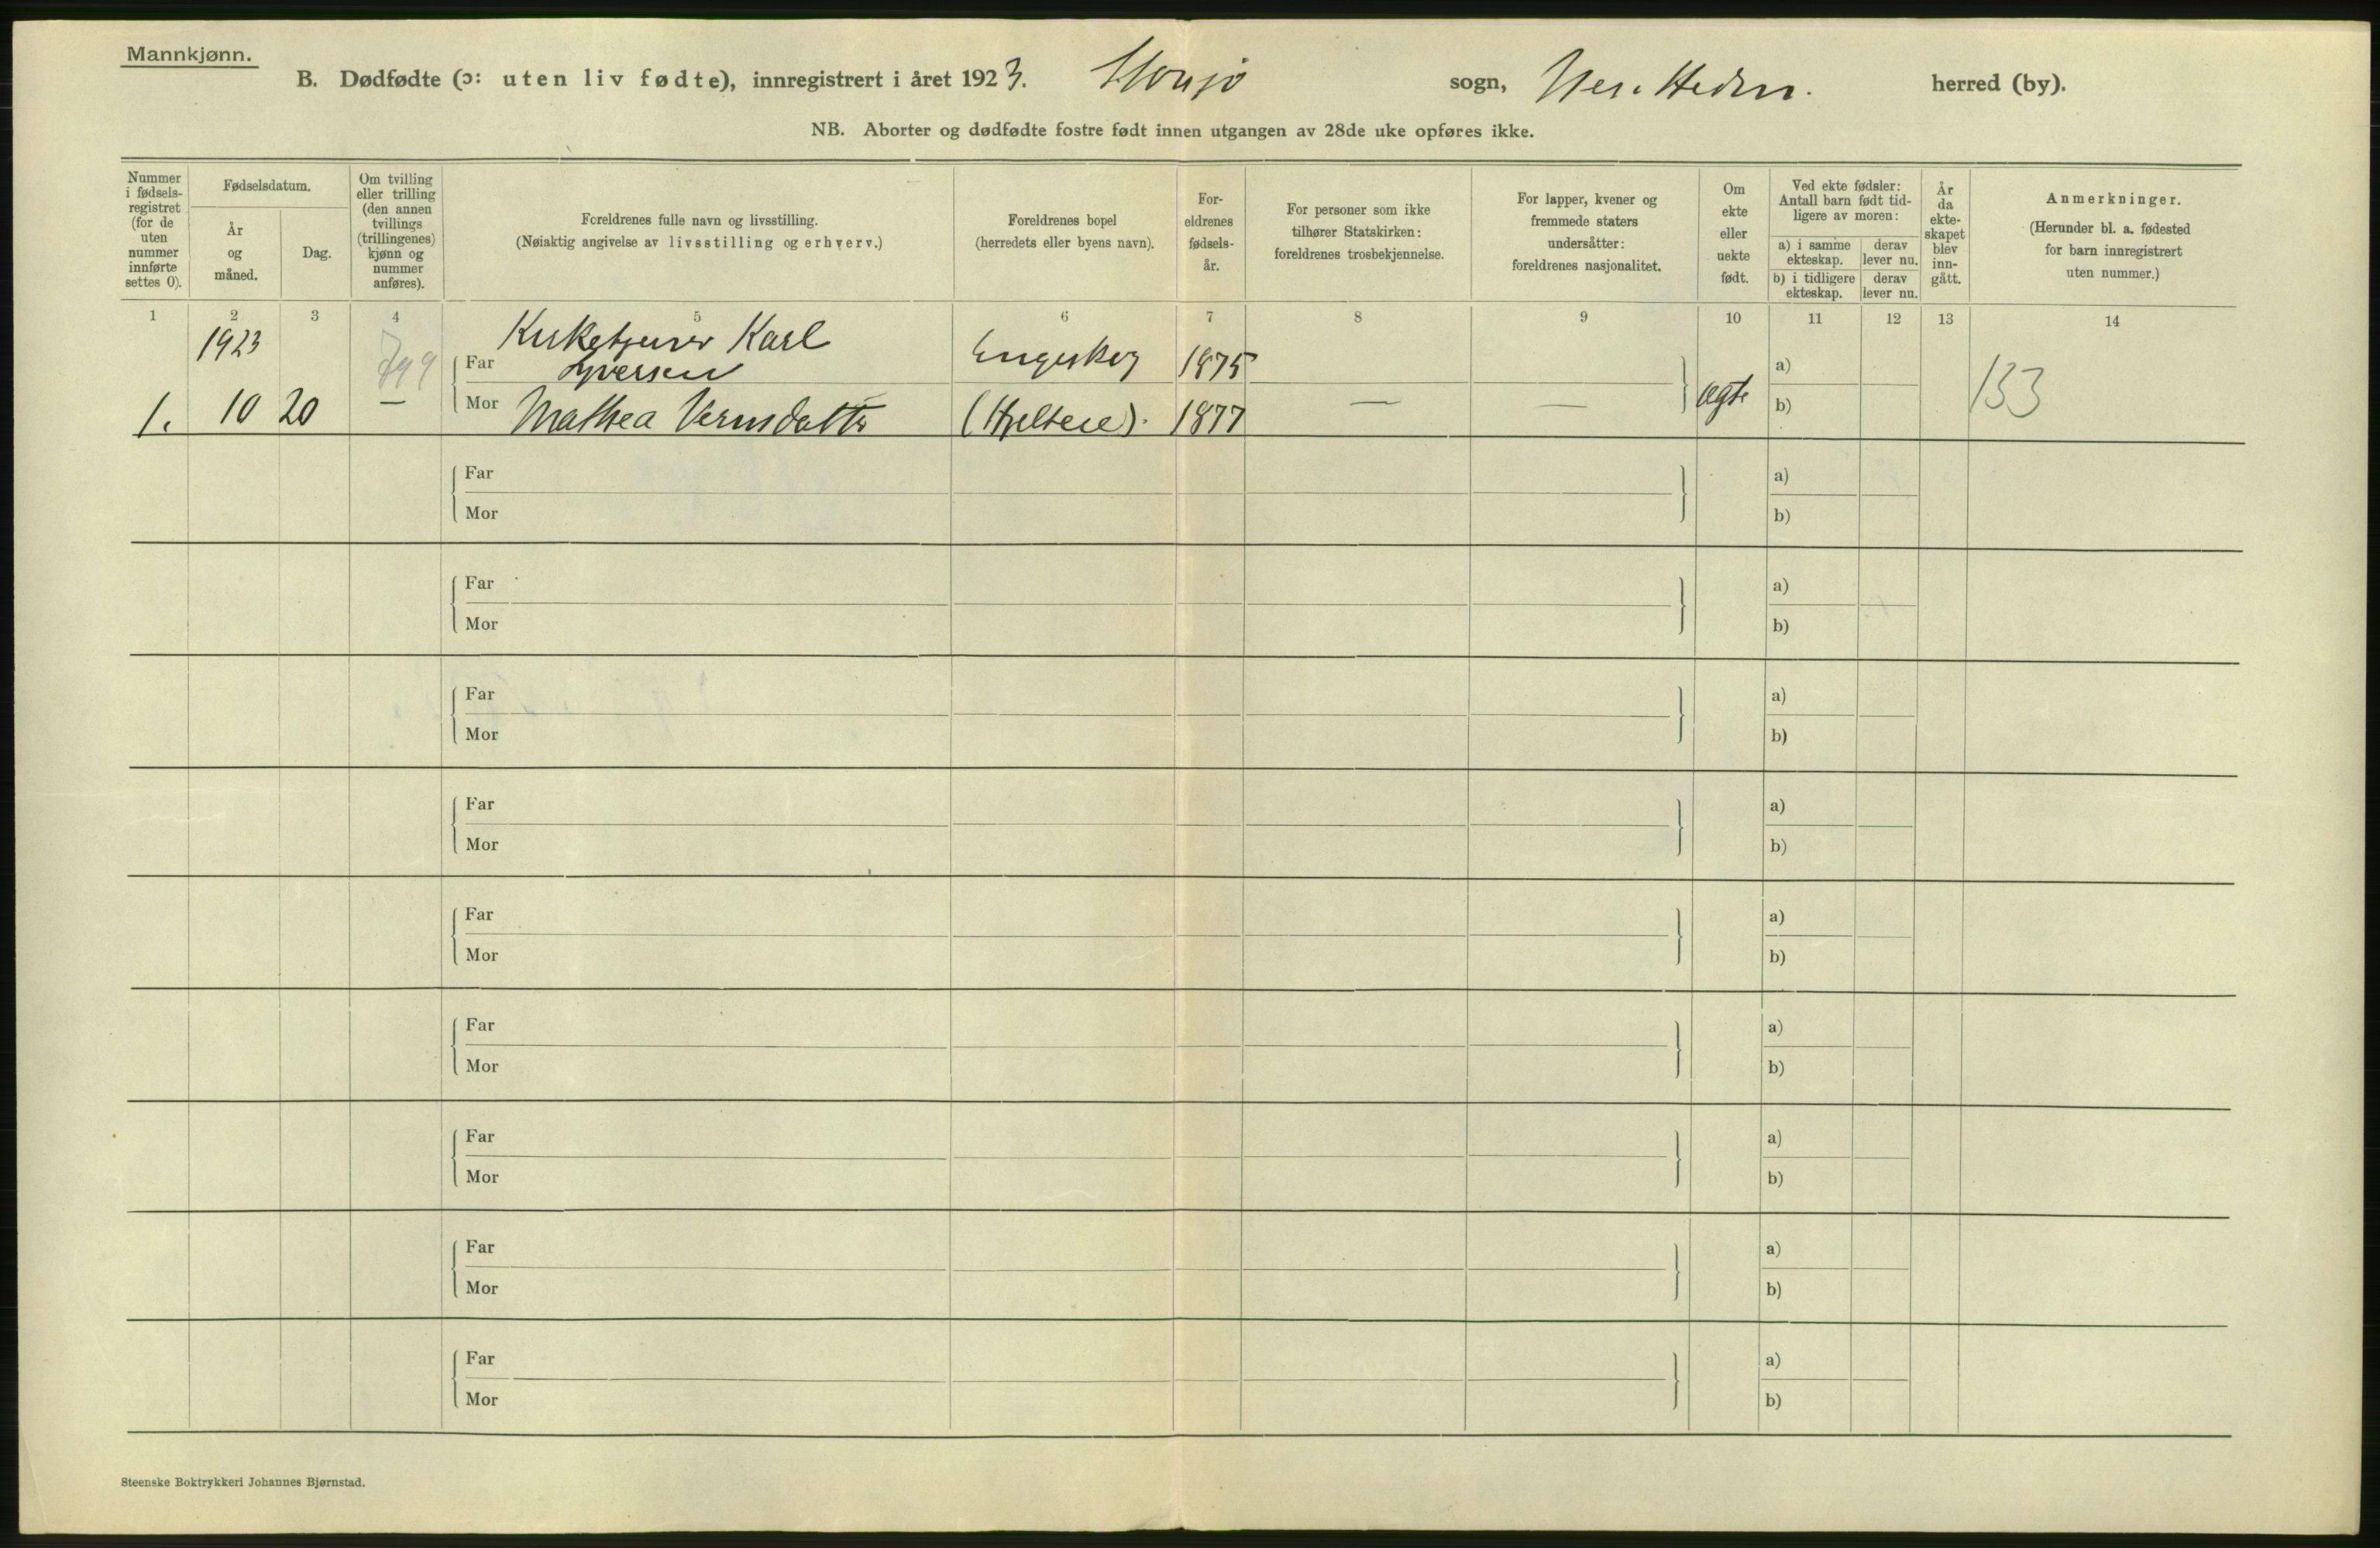 Mannkjønn.
B. Dødfødte (ɔ: uten liv fødte), innregistrert i året 1923. sogn, herred (by).
NB. Aborter og dødfødte fostre født innen utgangen av 28de uke opføres ikke.
Nummer
i fødsels-
registret
(for de
uten
nummer
innførte
settes 0).
Fødselsdatum.
År
og
måned.
Dag.
Om tvilling
eller trilling
(den annen
tvillings
(trillingenes)
kjønn og
nummer
anføres).
Foreldrenes fulle navn og livsstilling.
(Nøiaktig angivelse av livsstilling og erhverv.)
Foreldrenes bopel
(herredets eller byens navn).
For-
eldrenes
fødsels-
år.
For personer som ikke
tilhører Statskirken:
foreldrenes trosbekjennelse.
For lapper, kvener og
fremmede staters
undersåtter:
foreldrenes nasjonalitet.
Om
ekte
eller
uekte
født.
Ved ekte fødsler:
Antall barn født tid-
ligere av moren:
a) i samme
ekteskap.
derav
lever nu.
b) i tidligere
ekteskap.
derav
lever nu.
År
da
ekte-
skapet
blev
inn-
gått.
Anmerkninger.
(Herunder bl. a. fødested
for barn innregistrert
uten nummer.)
1 2 3 4 5 6 7 8 9 10 11 12 13 14
1923 Karl
Far 1875 a)
1. 10 20 — Mor Mathea (Hjelseie). 1877 — — ægte b) 133
Far a)
Mor b)
Far a)
Mor b)
Far a)
Mor b)
Far a)
Mor b)
Far a)
Mor b)
Far a)
Mor b)
Far a)
Mor b)
Far a)
Mor b)
Far a)
Mor b)
Steenske Boktrykkeri Johannes Bjørnstad.